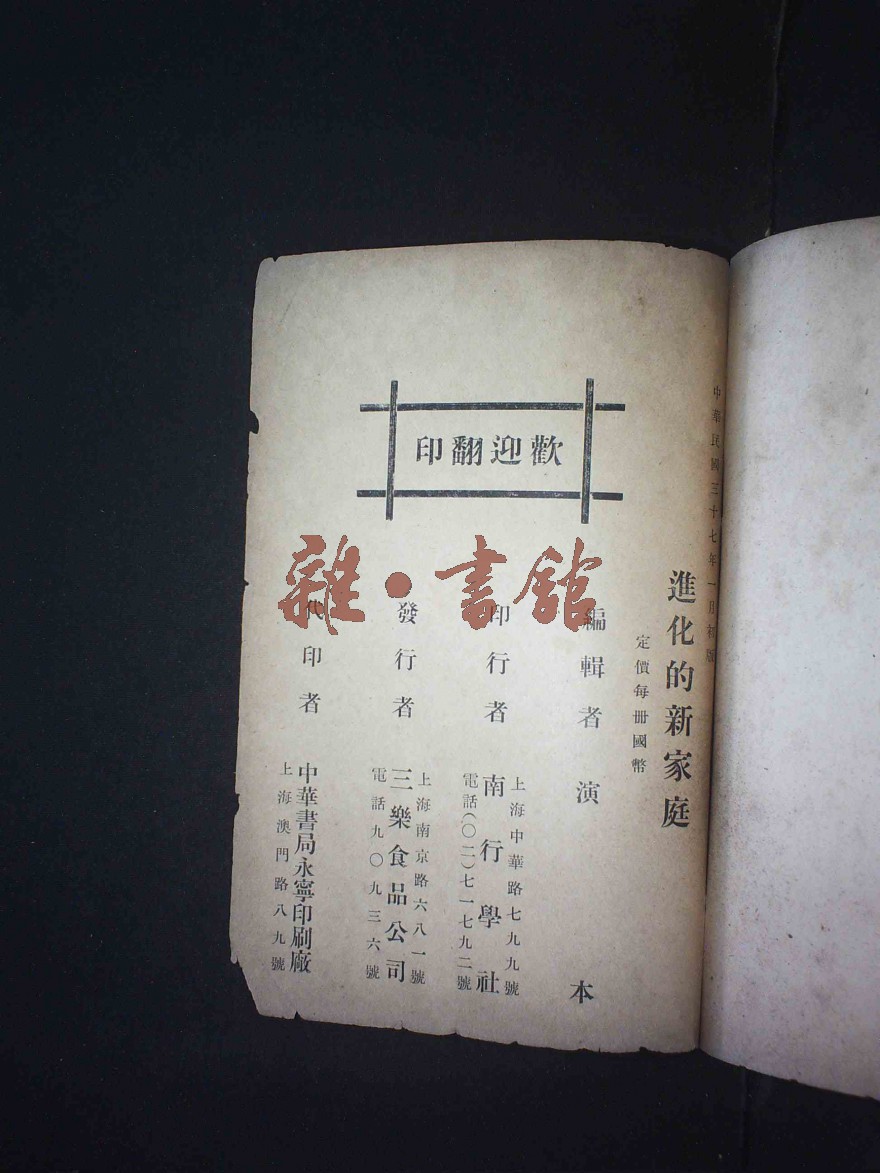 中華民國三十七年一月初版
進化的新家庭
定價每冊國幣
歡迎翻印
編輯者 演本
印行者 南行學社
上海中華路七九九號
電話(〇二)七一七九二號
發行者 三樂食品公司
上海南京路六八一號
電話九〇九三六號
代印者 中華書局永寧印刷廠
上海澳門路八九號
雜·書館